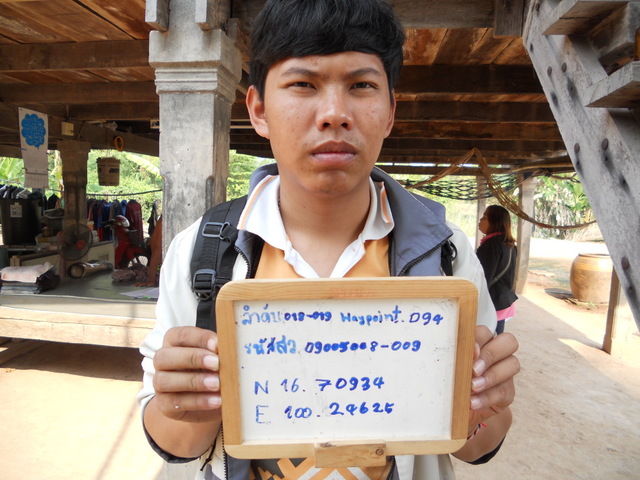 ลำดับ 018-019 Waypoint. 094
รหัสสว. 09005008-009
N 16. 70934
E 100. 24625